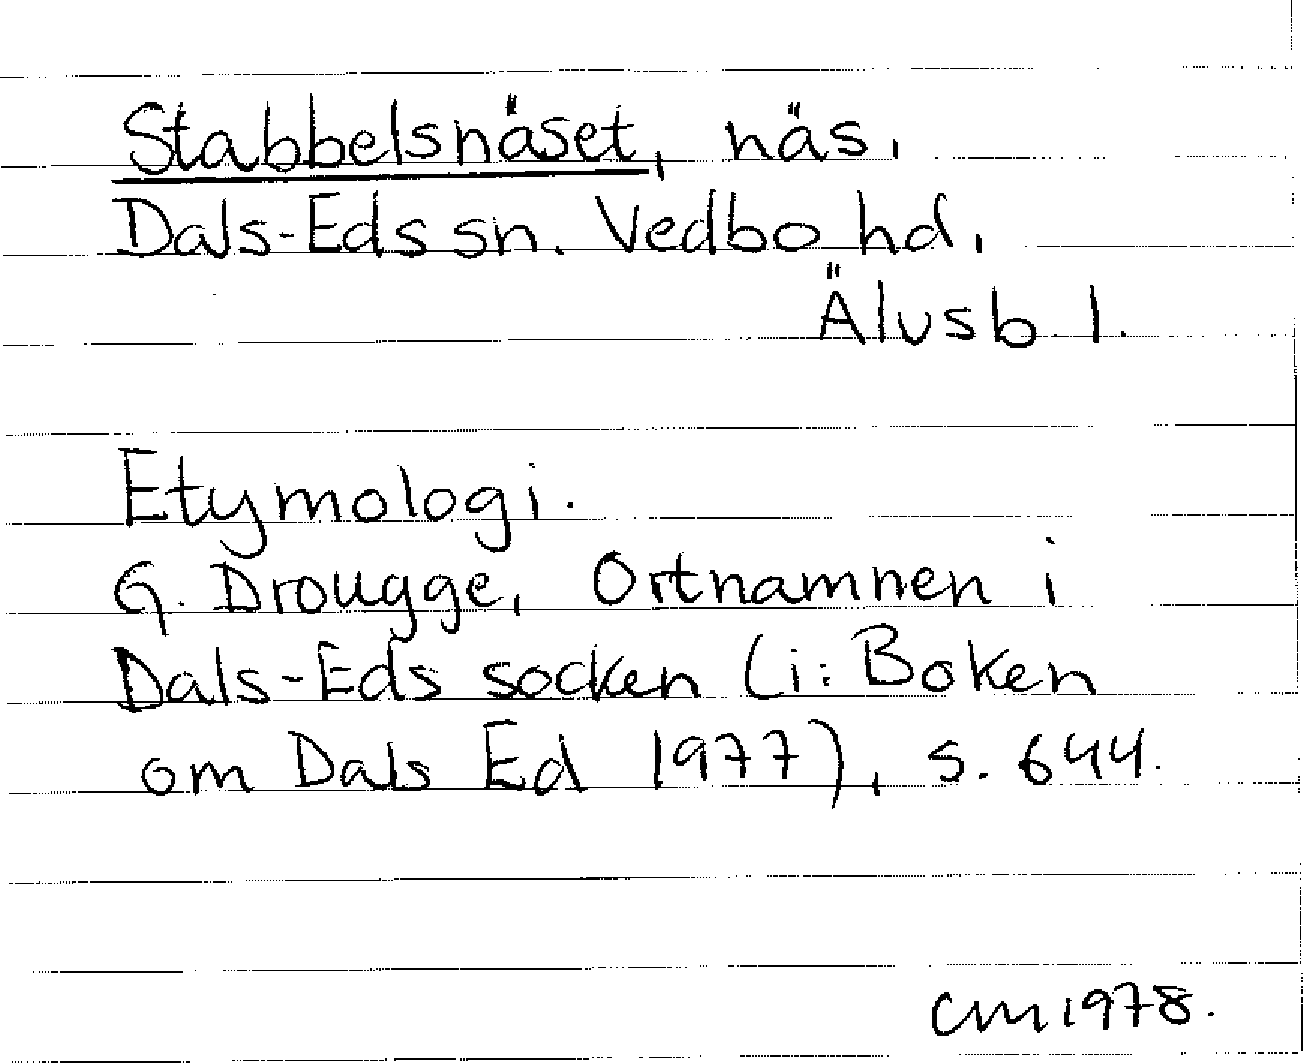 Stabbelsnäset, näs,
Dals-Eds sn. Vedbo hd,
Älvsb. l.
Etymologi.
G. Drougge, Ortnamnen i
Dals-Eds socken (i: Boken
om Dals Ed 1977), s. 644.
CM 1978.